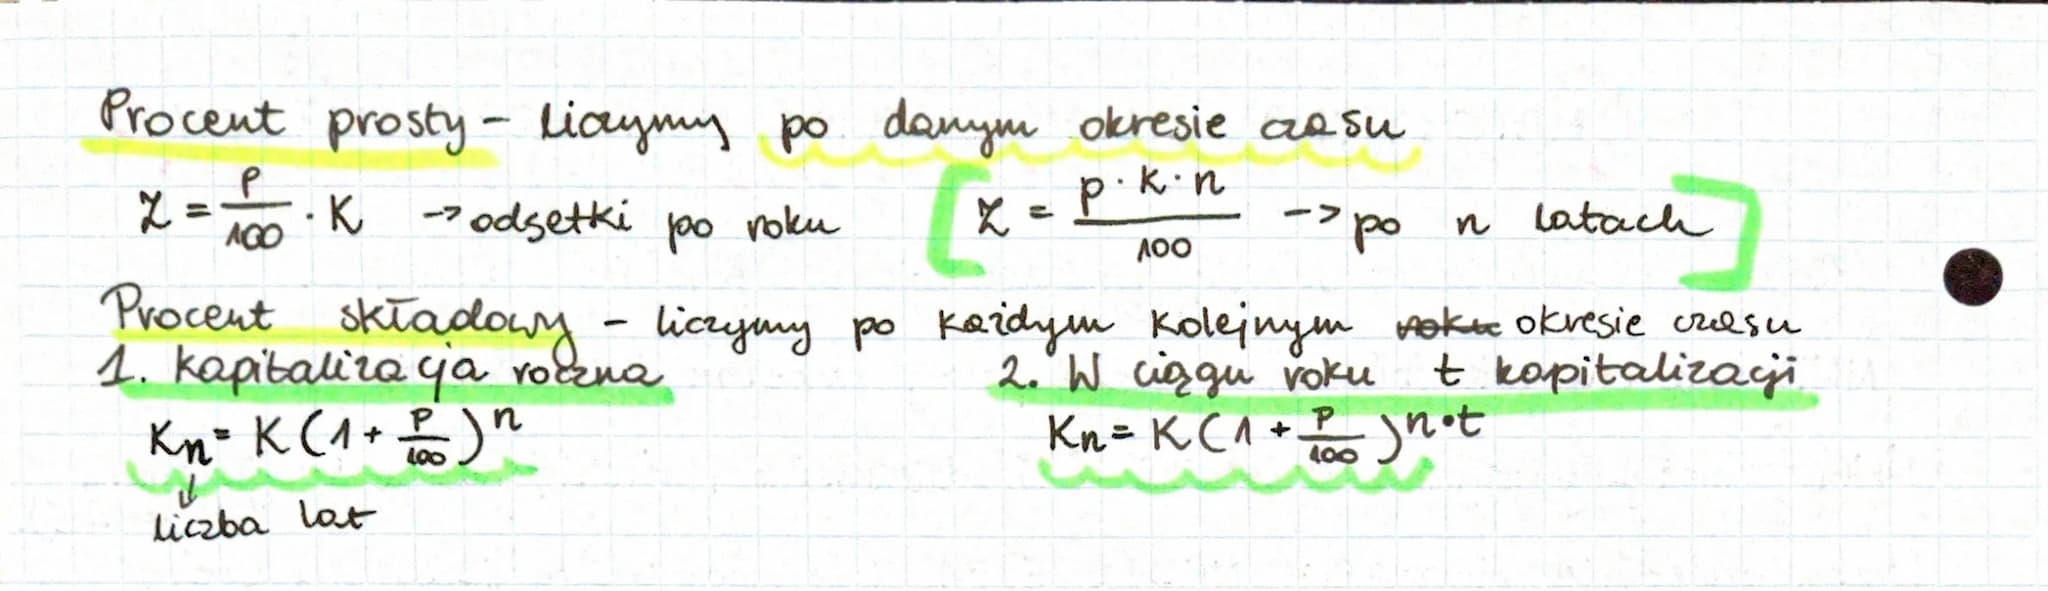 Procent prosty - liczymy po danym okresie czasu
Z = p/100 · K -> odsetki po roku [ Z = p · K · n / 100 -> po n latach ]
Procent składowy - liczymy po każdym kolejnym ~~roku~~ okresie czasu
1. Kapitalizacja roczna 2. W ciągu roku t kapitalizacji
Kn = K(1 + p/100)^n Kn = K(1 + p/100)^n·t
↓
liczba lat